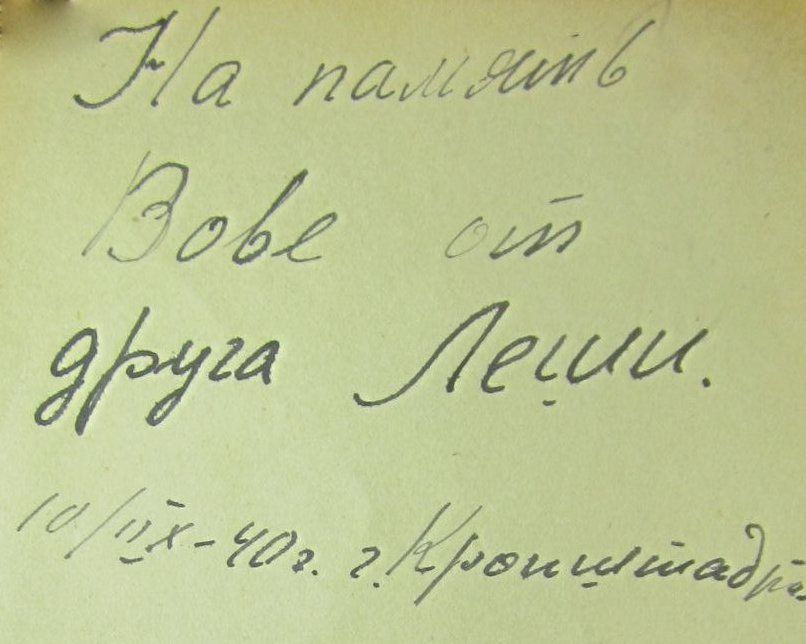 На память
Вове от
друга Леши.
10/IIX-40г. г. Кронштадт